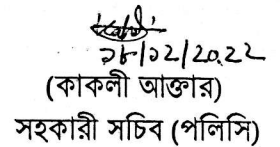 ২৮/১২/২০২২
(কাকলী আক্তার)
সহকারী সচিব (পলিসি)